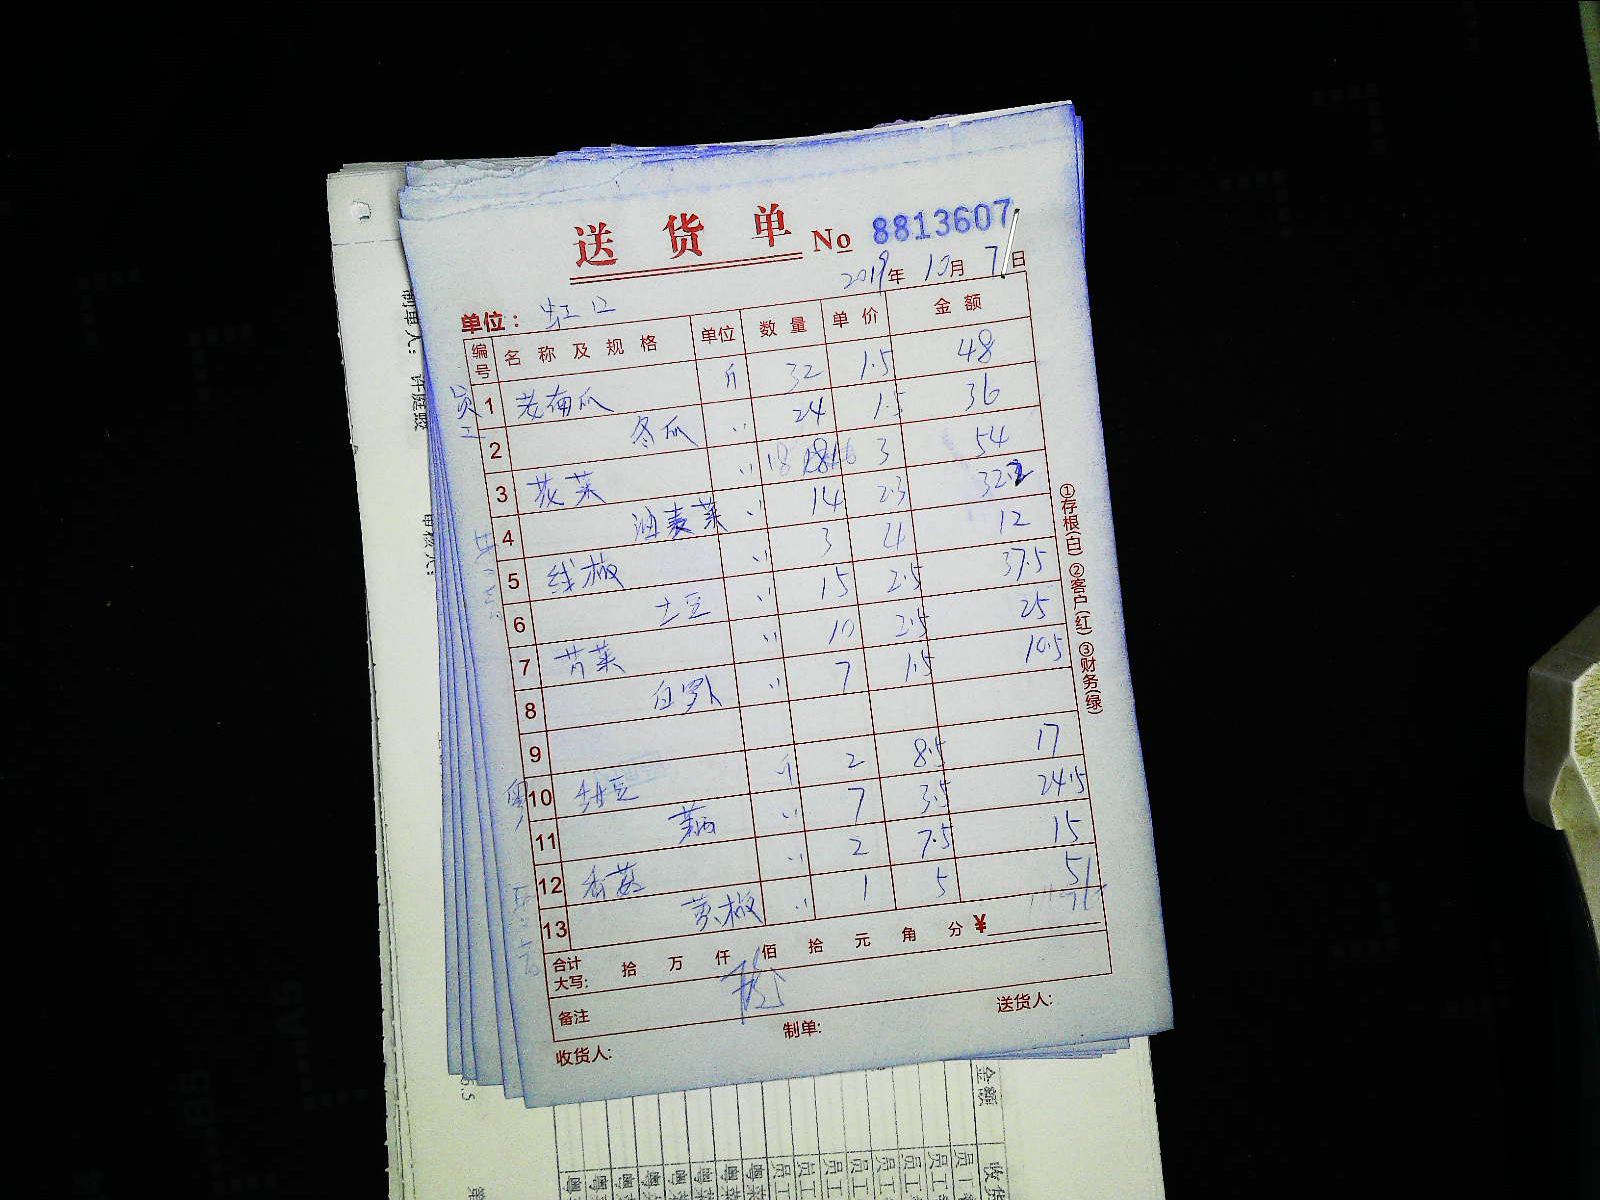 送 货 单 No 8813607
2019年 10月 7日
单位: 虹口
编号 名 称 及 规 格 单位 数 量 单 价 金 额
员工
1 老南瓜 斤 32 1.5 48
2 冬瓜 〃 24 1.5 36
3 花菜 〃 18 3 54
4 油麦菜 〃 14 2.3 32.2
5 线椒 〃 3 4 12
6 土豆 〃 15 2.5 37.5
7 芹菜 〃 10 2.5 25
8 白罗卜 〃 7 1.5 10.5
9
10 甜豆 斤 2 8.5 17
11 〃 7 3.5 24.5
12 香菇 〃 2 7.5 15
13 黄椒 〃 1 5 5
合计大写: 拾 万 仟 佰 拾 元 角 分 ¥
备注
收货人: 制单: 送货人:
①存根(白) ②客户(红) ③财务(绿)
制单人:
审核人:
金额